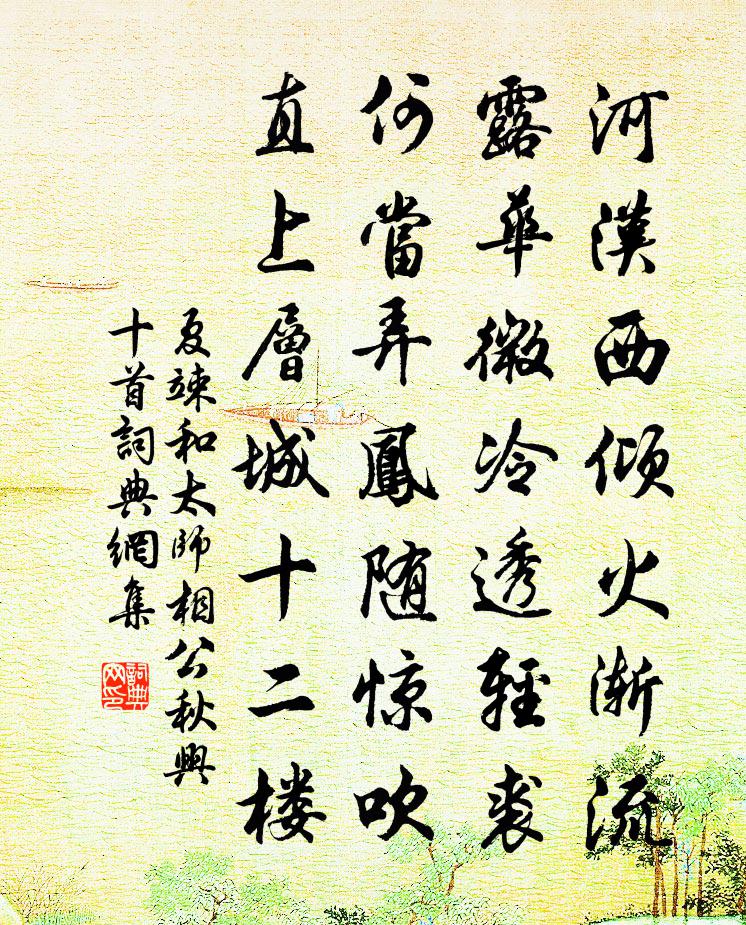 河漢西傾火渐流
露華微冷透輕裘
何當弄鳳随惊吹
直上層城十二楼
夏竦和太師相公秋興
十首詞典網集
詞典网印